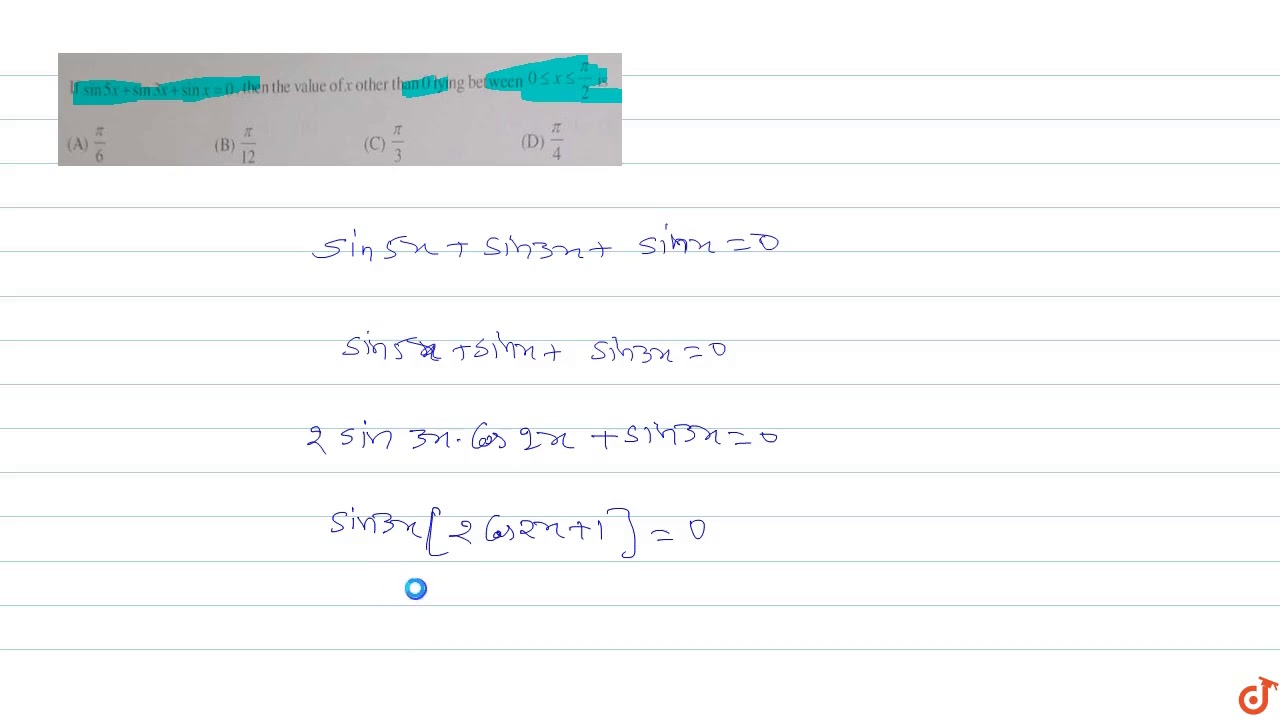 If sin 5x + sin 3x + sin x = 0, then the value of x other than 0 lying between 0 ≤ x ≤ π/2 is
(A) π/6 (B) π/12 (C) π/3 (D) π/4
sin5x + sin3x + sinx = 0
sin5x + sinx + sin3x = 0
2 sin 3x · Cos 2x + sin3x = 0
sin3x [2 Cos2x + 1] = 0